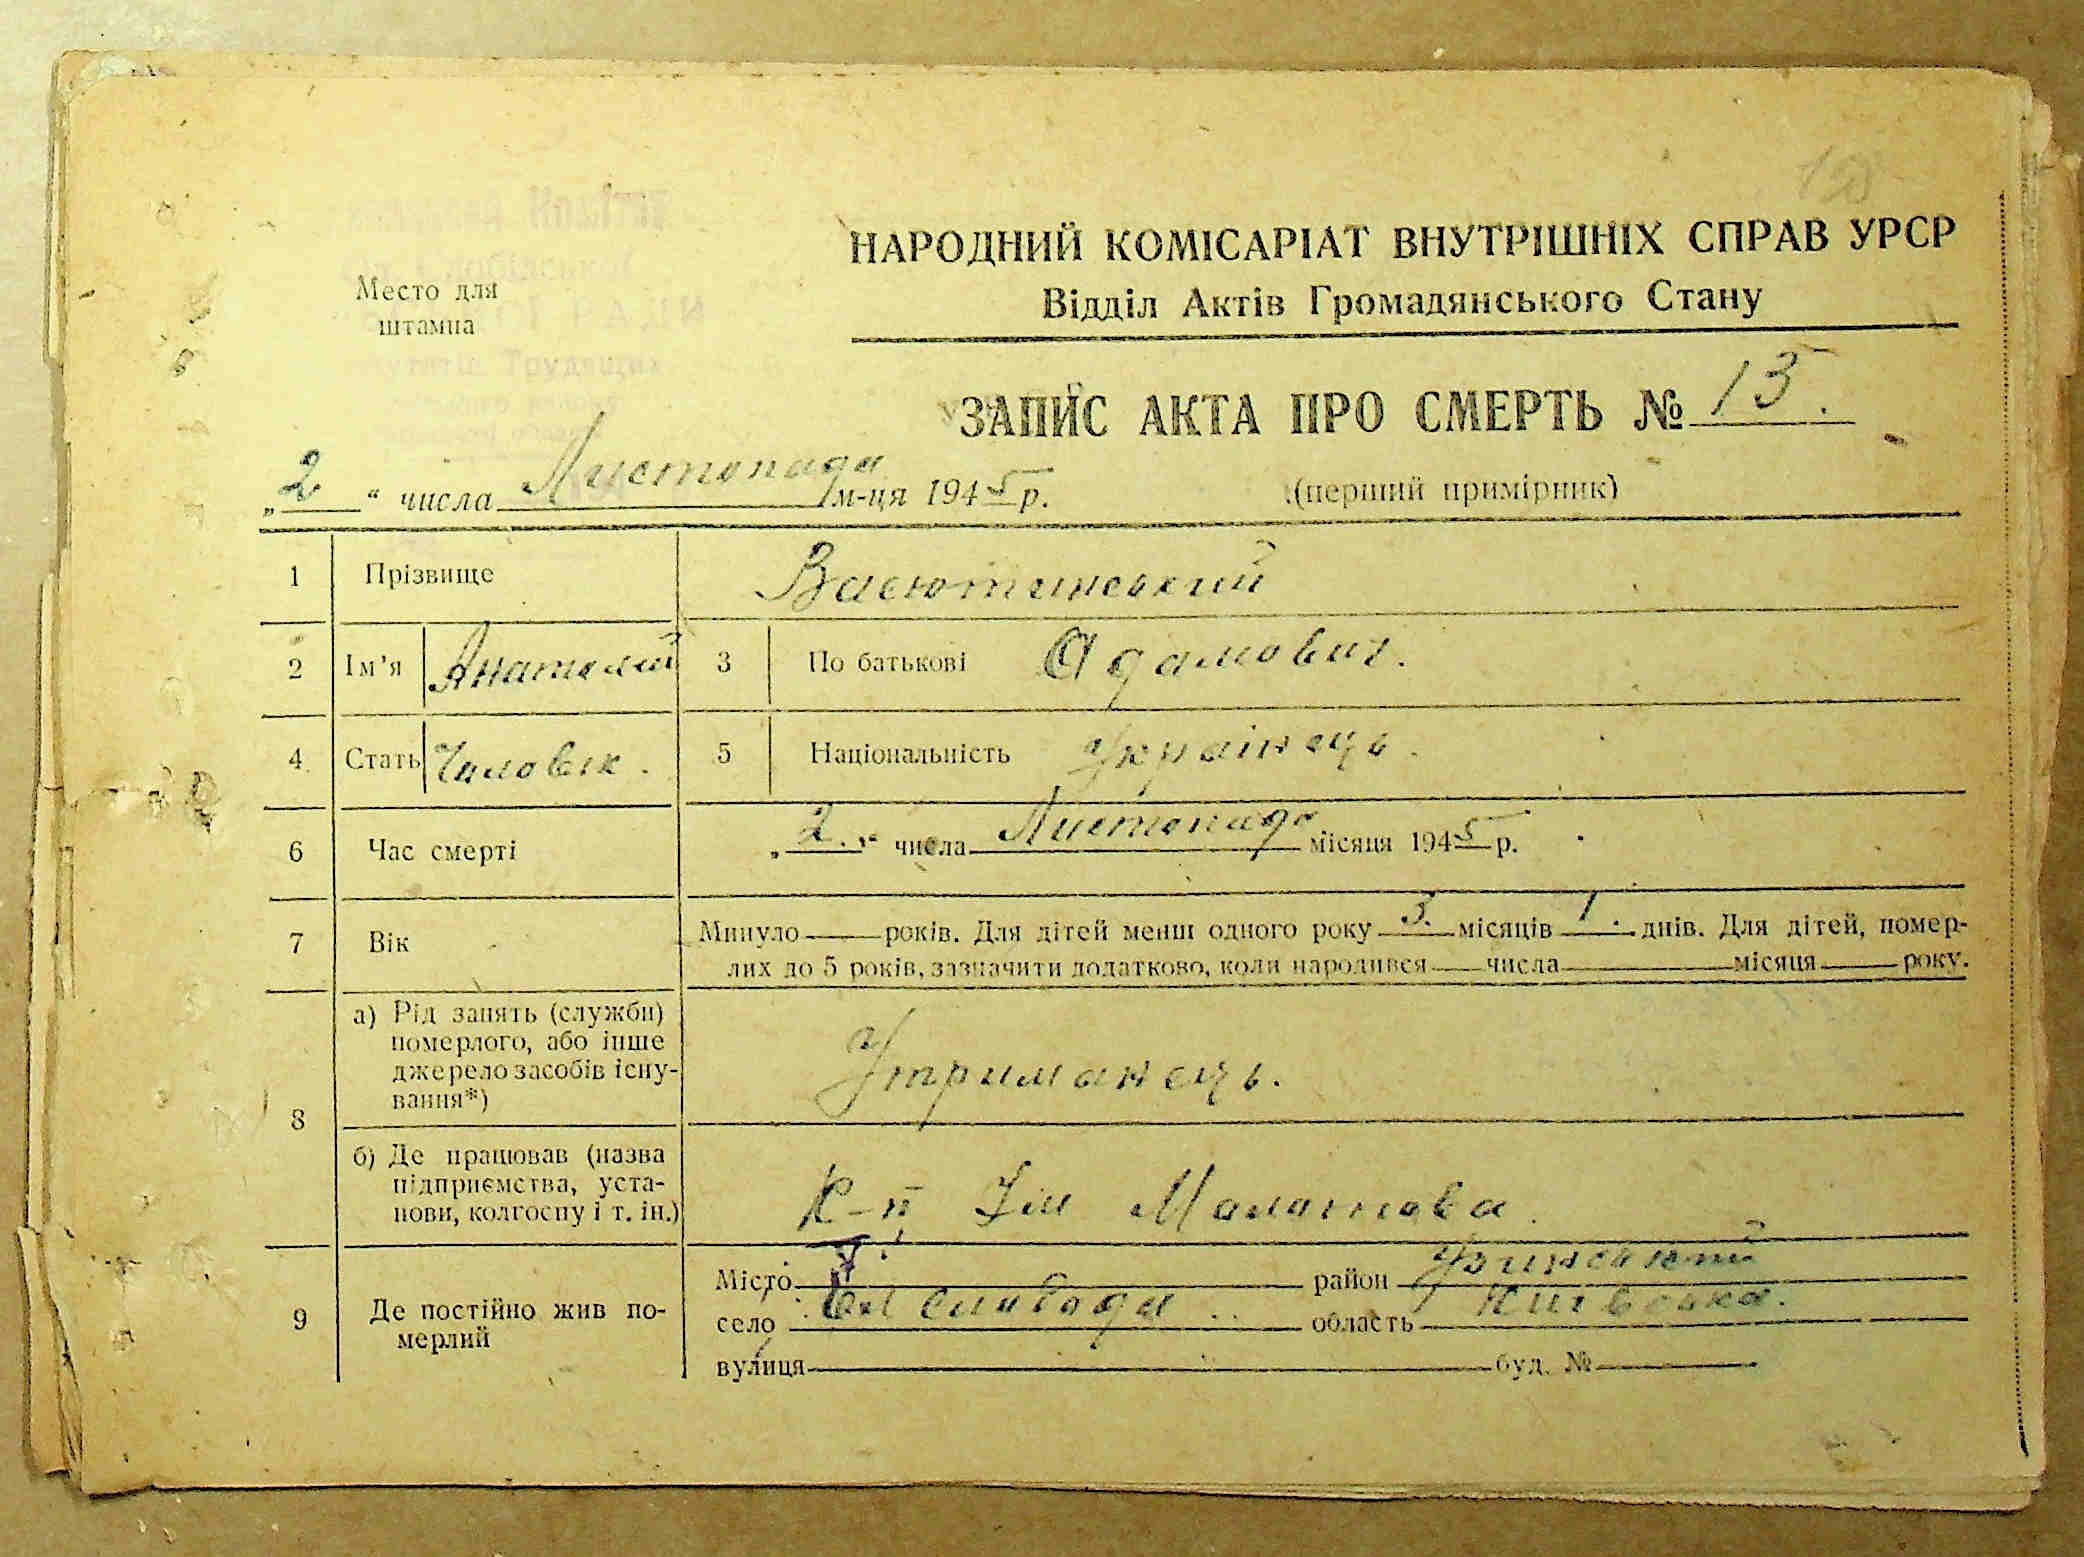 НАРОДНИЙ КОМІСАРІАТ ВНУТРІШНІХ СПРАВ УРСР
Відділ Актів Громадянського Стану
Место для
штампа
ЗАПИС АКТА ПРО СМЕРТЬ № 13.
„2“ числа Листопада м-ця 1945 р. (перший примірник)
1 Прізвище Васютинський
2 Ім’я Анатолий 3 По батькові Адамович.
4 Стать Чиловік. 5 Національність Українець.
6 Час смерті „2.“ числа Листопада місяця 1945 р.
7 Вік Минуло — років. Для дітей менш одного року 3. місяців 1. днів. Для дітей, помер-
лих до 5 років, зазначити додатково, коли народився — числа — місяця — року.
8 а) Рід занять (служби)
померлого, або інше
джерело засобів існу-
вання*) Утриманець.
б) Де працював (назва
підприємства, уста-
нови, колгоспу і т. ін.) К-п Ім Молотова.
9 Де постійно жив по-
мерлий
Місто район Узинський
село слобода область Київська.
вулиця буд. №